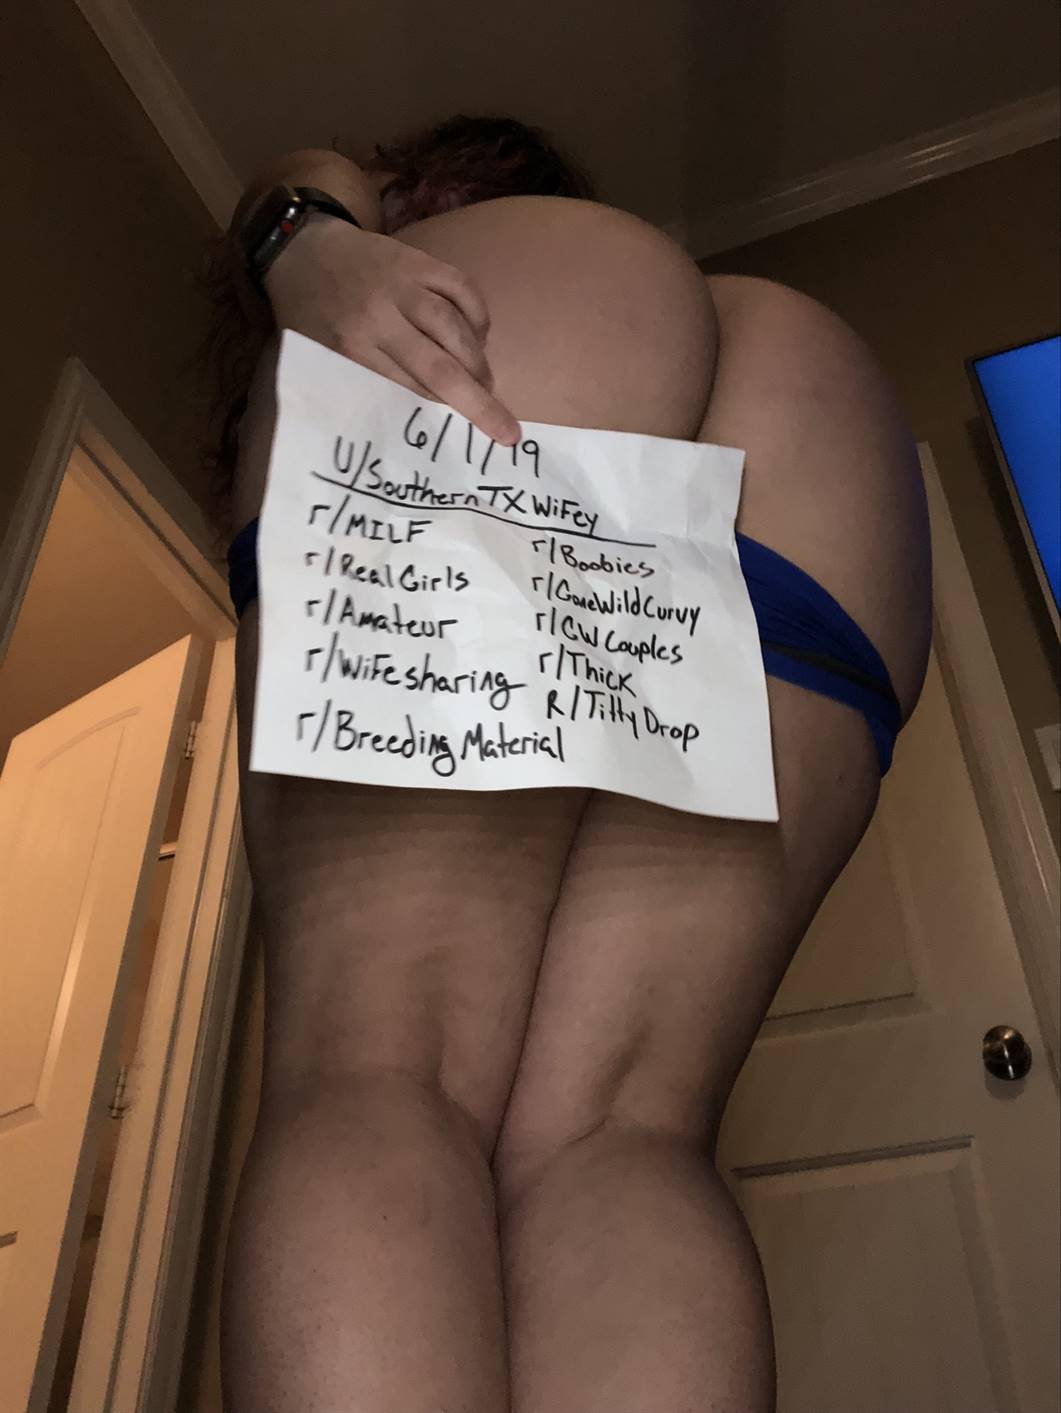 6/1/19
U/SouthernTXWiFey
r/MILF
r/RealGirls
r/Amateur
r/Wifesharing
r/Breeding Material
r/Boobies
r/GoneWildCurvy
r/GWCouples
r/Thick
R/TittyDrop